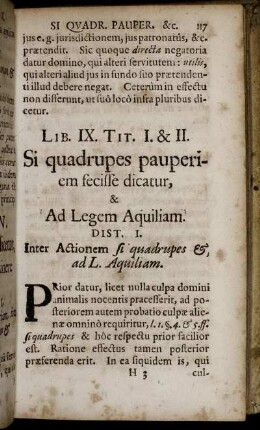 SI QVADR. PAUPER. &c. 117
jus e. g. jurisdictionem, jus patronatûs, &c.
prætendit. Sic quoque directa negatoria
datur domino, qui alteri servitutem: utilis,
qui alteri aliud jus in fundo suo prætenden-
ti illud debere negat. Ceterùm in effectu
non differunt, ut suô locô infra pluribus di-
cetur.
LIB. IX. TIT. I. & II.
Si quadrupes pauperi-
em fecisse dicatur,
&
Ad Legem Aquiliam.
DIST. I.
Inter Actionem si quadrupes &,
ad L. Aquiliam.
PRior datur, licet nulla culpa domini
animalis nocentis præcesserit, ad po-
steriorem autem probatio culpæ alie-
næ omninò requiritur, l. 1. §. 4. & 5. ff.
si quadrupes & hôc respectu prior facilior
est. Ratione effectus tamen posterior
præferenda erit. In ea siquidem is, qui
H 3 cul-